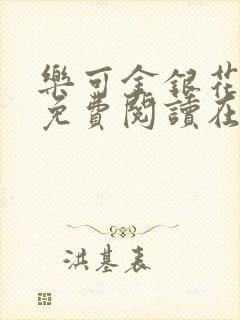 樂可金銀花
免費閱讀在
洪基表